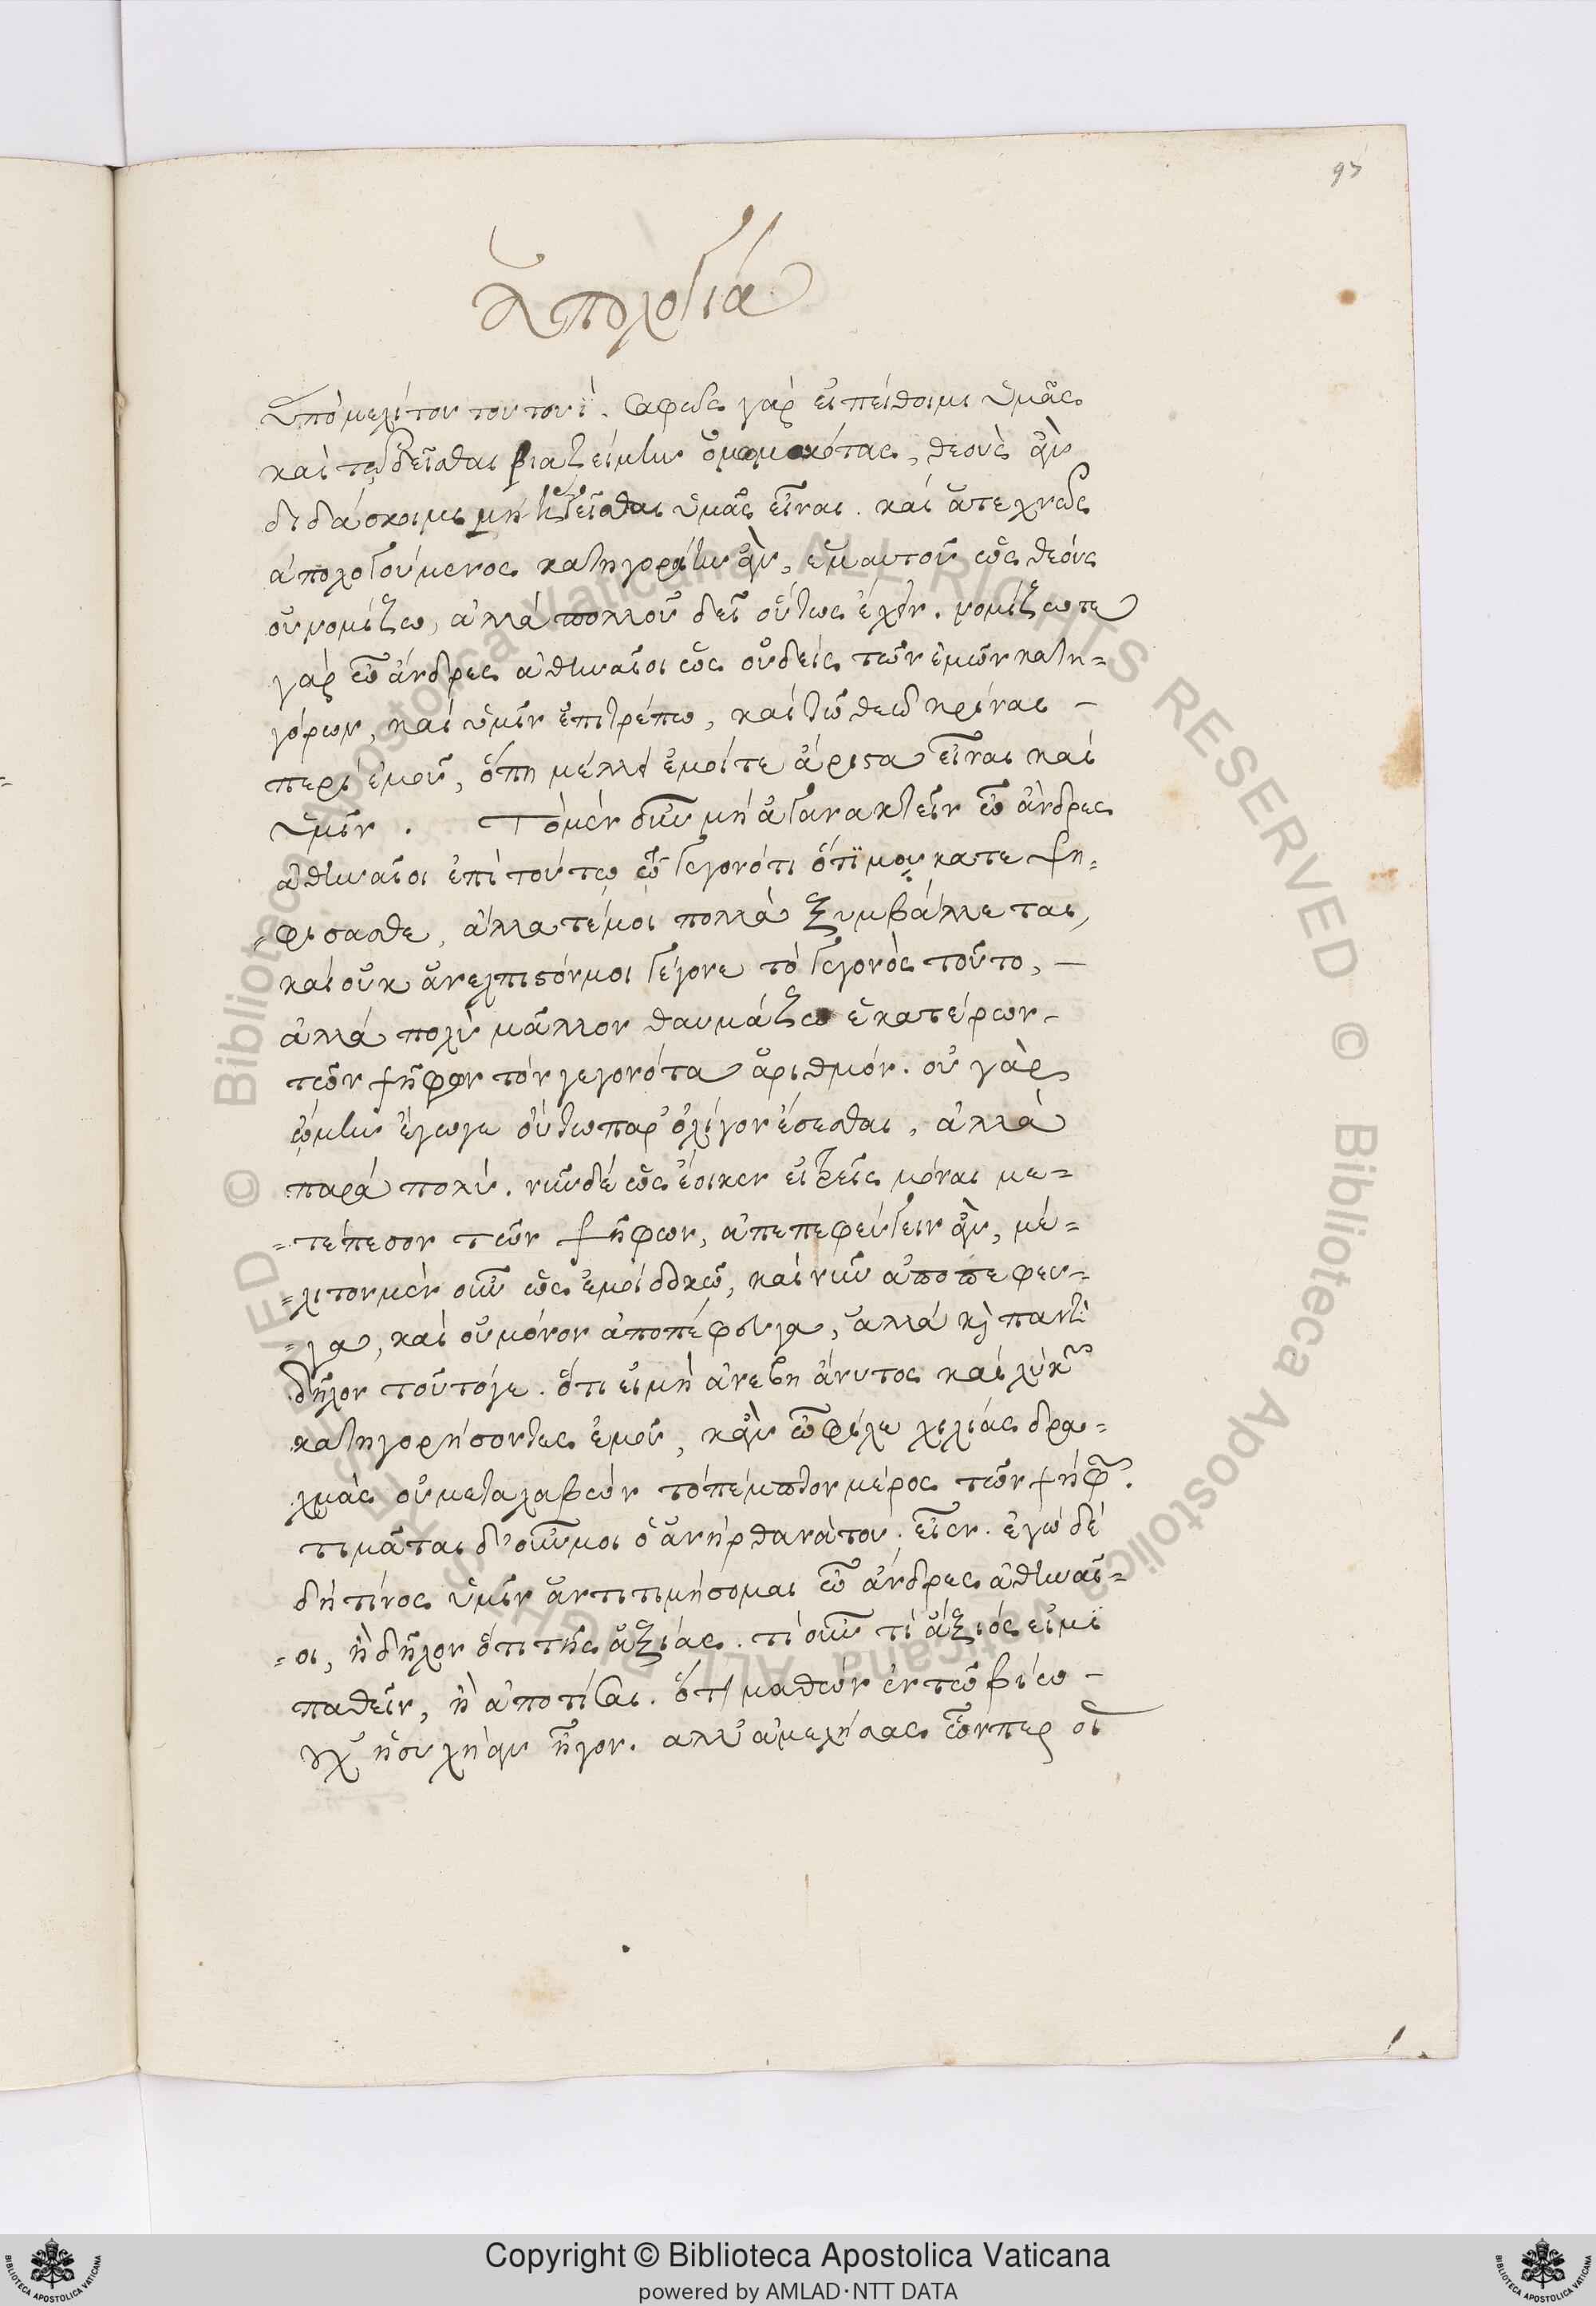 97
ἀπολογία
ὑπὸ μελίτου τουτουΐ. σαφῶς γὰρ εἰ πείθοιμι ὑμᾶς
καὶ τῷ δεῖσθαι βιαζείμην ὀμωμοκότας, θεοὺς ἂν
διδάσκοιμι μὴ ἡγεῖσθαι ὑμᾶς εἶναι. καὶ ἀτεχνῶς
ἀπολογούμενος κατηγοροίην ἂν, ἐμαυτοῦ ὡς θεοὺς
οὐ νομίζω, ἀλλὰ πολλοῦ δεῖ οὕτως ἔχειν. νομίζω τε
γὰρ ὦ ἄνδρες ἀθηναῖοι ὡς οὐδεὶς τῶν ἐμῶν κατη=
γόρων, καὶ ὑμῖν ἐπιτρέπω, καὶ τῷ θεῷ κρίναι –
περὶ ἐμοῦ, ὅπη μέλλει ἐμοί τε ἄριστα εἶναι καὶ
ὑμῖν. Τὸ μὲν οὖν μὴ ἀγανακτεῖν ὦ ἄνδρες
ἀθηναῖοι ἐπὶ τούτῳ τῷ γεγονότι ὅτι μου κατεψη=
=φίσασθε, ἄλλα τέ μοι πολλὰ ξυμβάλλεται,
καὶ οὐκ ἀνέλπιστόν μοι γέγονε τὸ γεγονὸς τοῦτο, –
ἀλλὰ πολὺ μᾶλλον θαυμάζω ἑκατέρων –
τῶν ψήφων τὸν γεγονότα ἀριθμόν. οὐ γὰρ
ᾤμην ἔγωγε οὕτω παρ' ὀλίγον ἔσεσθαι, ἀλλὰ
παρὰ πολύ. νῦν δὲ ὡς ἔοικεν εἰ τρεῖς μόναι με=
=τέπεσον τῶν ψήφων, ἀπεπεφεύγειν ἂν, μέ=
=λιτον μὲν οὖν ὡς ἐμοὶ δοκῶ, καὶ νῦν ἀποπεφευ=
=γα, καὶ οὐ μόνον ἀποπέφευγα, ἀλλὰ καὶ παντὶ
δῆλον τοῦτό γε. ὅτι εἰ μὴ ἀνέβη ἄνυτος καὶ λύκων
κατηγορήσοντες ἐμοῦ, κἂν ὦφλε χιλίας δρα=
χμὰς οὐ μεταλαβὼν τὸ πέμπτον μέρος τῶν ψήφων.
τιμᾶται δ' οὖν μοι ὁ ἀνὴρ θανάτου. εἶεν. ἐγὼ δὲ
δὴ τίνος ὑμῖν ἀντιτιμήσομαι ὦ ἄνδρες ἀθηναῖ=
=οι, ἢ δῆλον ὅτι τῆς ἀξίας. τί οὖν τί ἄξιός εἰμι
παθεῖν, ἢ ἀποτίσαι. ὅτι μαθὼν ἐν τῷ βίῳ –
οὐχ ἡσυχίαν ἦγον. ἀλλ' ἀμελήσας ὧνπερ οἱ
Copyright © Biblioteca Apostolica Vaticana
powered by AMLAD·NTT DATA